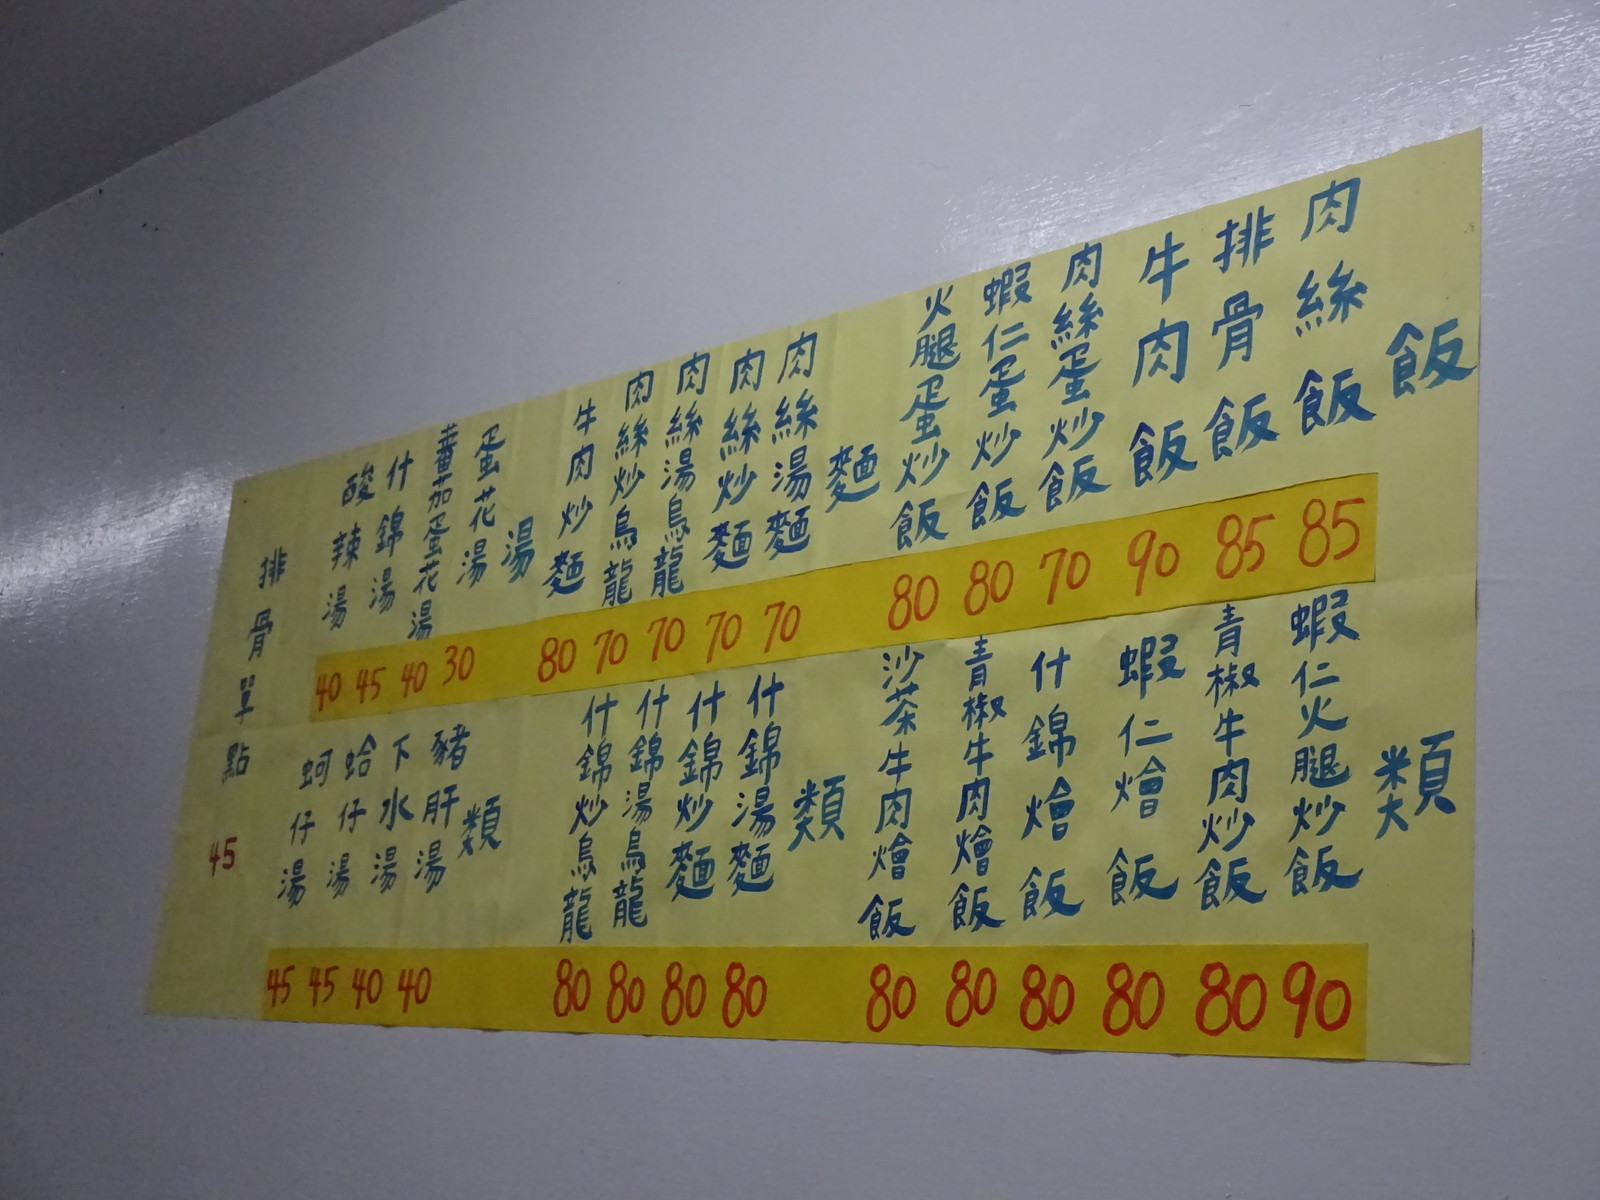 飯類
肉絲飯 85
排骨飯 85
牛肉飯 90
肉絲蛋炒飯 70
蝦仁蛋炒飯 80
火腿蛋炒飯 80
蝦仁火腿炒飯 90
青椒牛肉炒飯 80
蝦仁燴飯 80
什錦燴飯 80
青椒牛肉燴飯 80
沙茶牛肉燴飯 80
麵類
肉絲湯麵 70
肉絲炒麵 70
肉絲湯烏龍 70
肉絲炒烏龍 70
牛肉炒麵 80
什錦湯麵 80
什錦炒麵 80
什錦湯烏龍 80
什錦炒烏龍 80
湯類
蛋花湯 30
蕃茄蛋花湯 40
什錦湯 45
酸辣湯 40
豬肝湯 40
下水湯 40
蛤仔湯 45
蚵仔湯 45
排骨單點 45